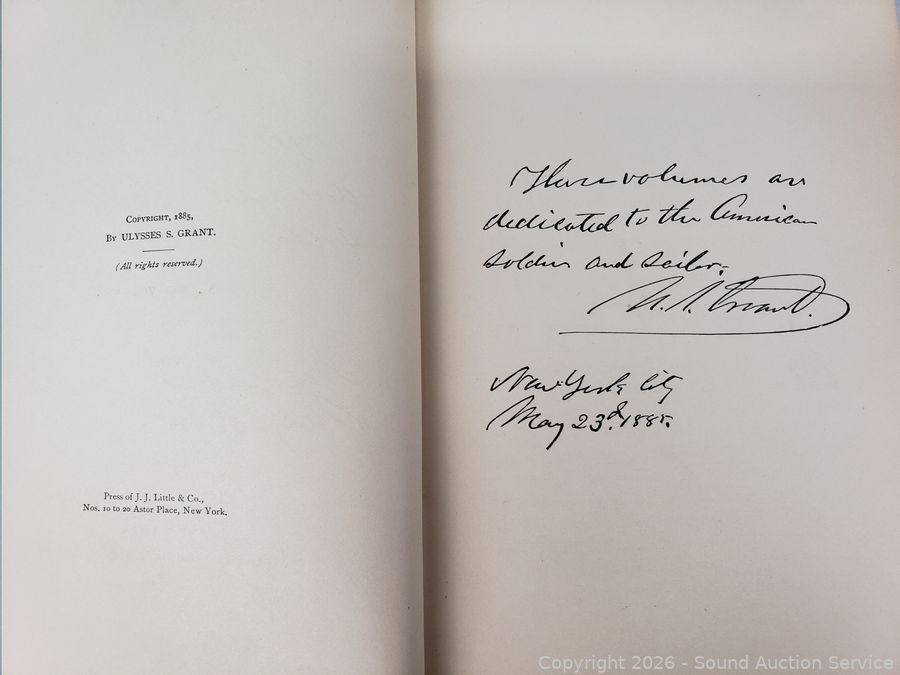 COPYRIGHT, 1885,
BY ULYSSES S. GRANT.
(All rights reserved.)
Press of J. J. Little & Co.,
Nos. 10 to 20 Astor Place, New York.
These volumes are
dedicated to the American
soldier and sailor.
U. S. Grant.
New York City
May 23d. 1885.
Copyright 2026 - Sound Auction Service